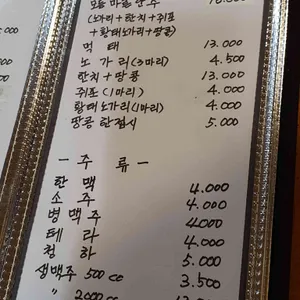 모듬 마른안주 10.000
(노가리+한치+쥐포
+황태노가리+땅콩)
먹 태 13.000
노 가 리 (3마리) 4.500
한치+땅콩 13.000
쥐포 (1마리) 4.000
황태노가리 (1마리) 4.000
땅콩 한접시 5.000
- 주 류 -
한 맥 4.000
소 주 4.000
병 맥 주 4000
테 라 4.000
청 하 5.000
생맥주 500 cc 3.500
" 2000 cc
.000